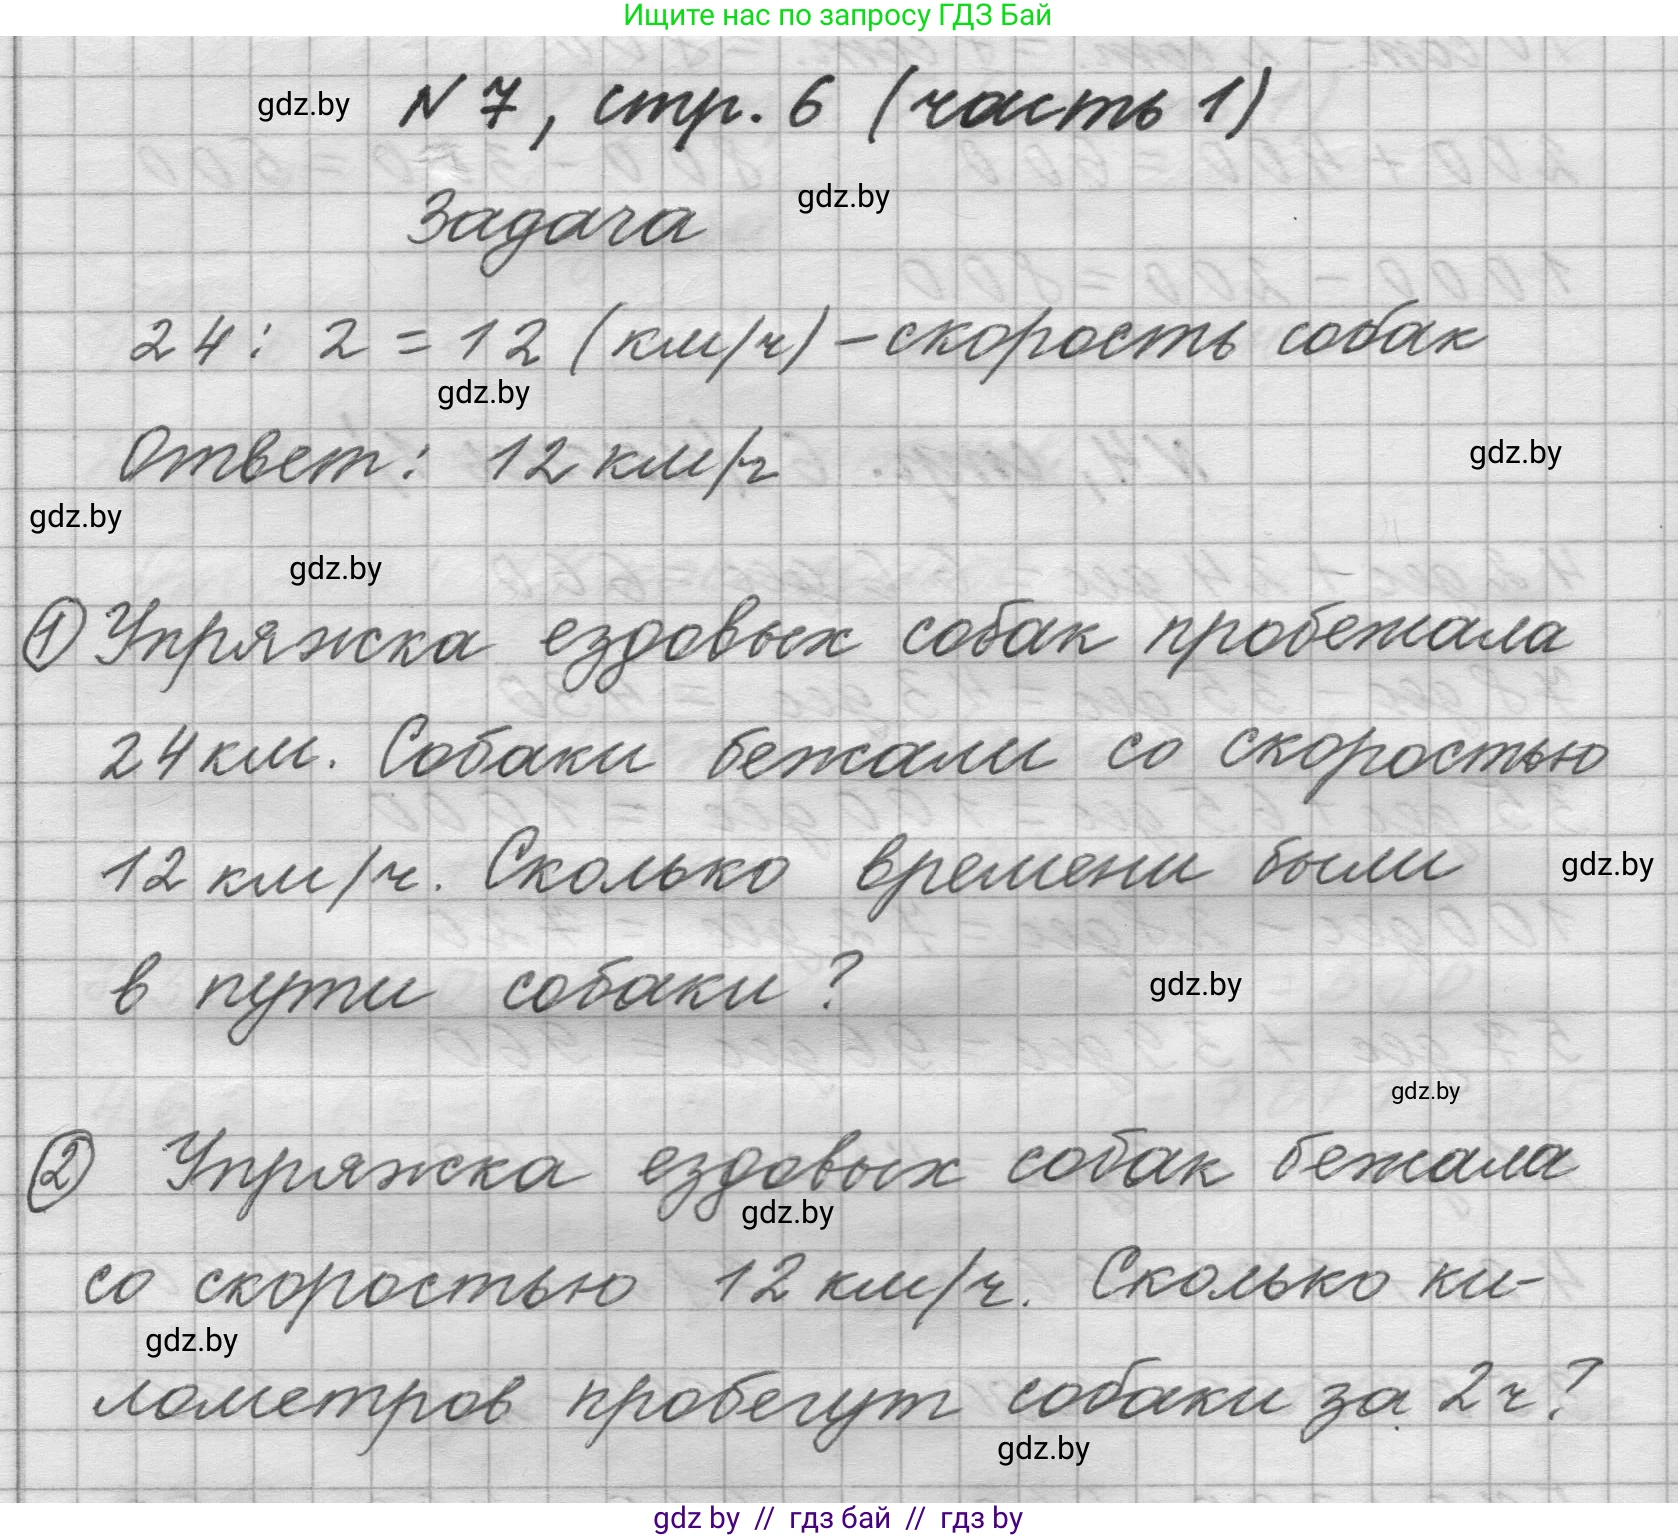 Ищите нас по запросу ГДЗ Бай
gdz.by N 7, стр. 6 (часть 1)
Задача gdz.by
24 : 2 = 12 (км/ч) – скорость собак
gdz.by
Ответ: 12 км/ч gdz.by
gdz.by
gdz.by
① Упряжка ездовых собак пробежала
24 км. Собаки бежали со скоростью
12 км/ч. Сколько времени были gdz.by
в пути собаки? gdz.by
gdz.by
② Упряжка ездовых собак бежала
gdz.by
со скоростью 12 км/ч. Сколько ки-
gdz.by
лометров пробегут собаки за 2 ч?
gdz.by
gdz by // гдз бай // гдз by